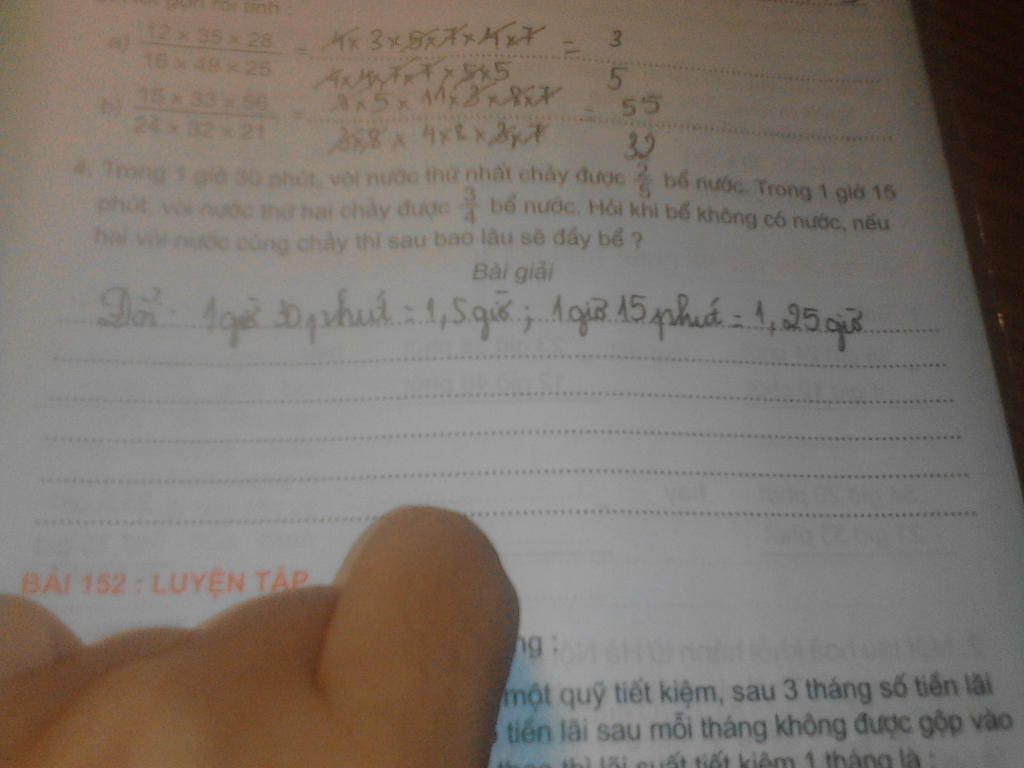 gọn rồi tính :
a) 12 × 35 × 28 / 16 × 49 × 25 = 4 × 3 × 5 × 7 × 4 × 7 / 4 × 4 × 7 × 7 × 5 × 5 = 3 / 5
b) 15 × 33 × 56 / 24 × 32 × 21 = 3 × 5 × 11 × 3 × 8 × 7 / 3 × 8 × 4 × 8 × 3 × 7 = 55 / 32
4. Trong 1 giờ 30 phút, vòi nước thứ nhất chảy được 2/5 bể nước. Trong 1 giờ 15
phút, vòi nước thứ hai chảy được 3/4 bể nước. Hỏi khi bể không có nước, nếu
hai vòi nước cùng chảy thì sau bao lâu sẽ đầy bể ?
Bài giải
Đổi: 1 giờ 30 phút = 1,5 giờ ; 1 giờ 15 phút = 1,25 giờ
BÀI 152 : LUYỆN TẬP
ng :
một quỹ tiết kiệm, sau 3 tháng số tiền lãi
tiền lãi sau mỗi tháng không được gộp vào
thì lãi suất tiết kiệm 1 tháng là :